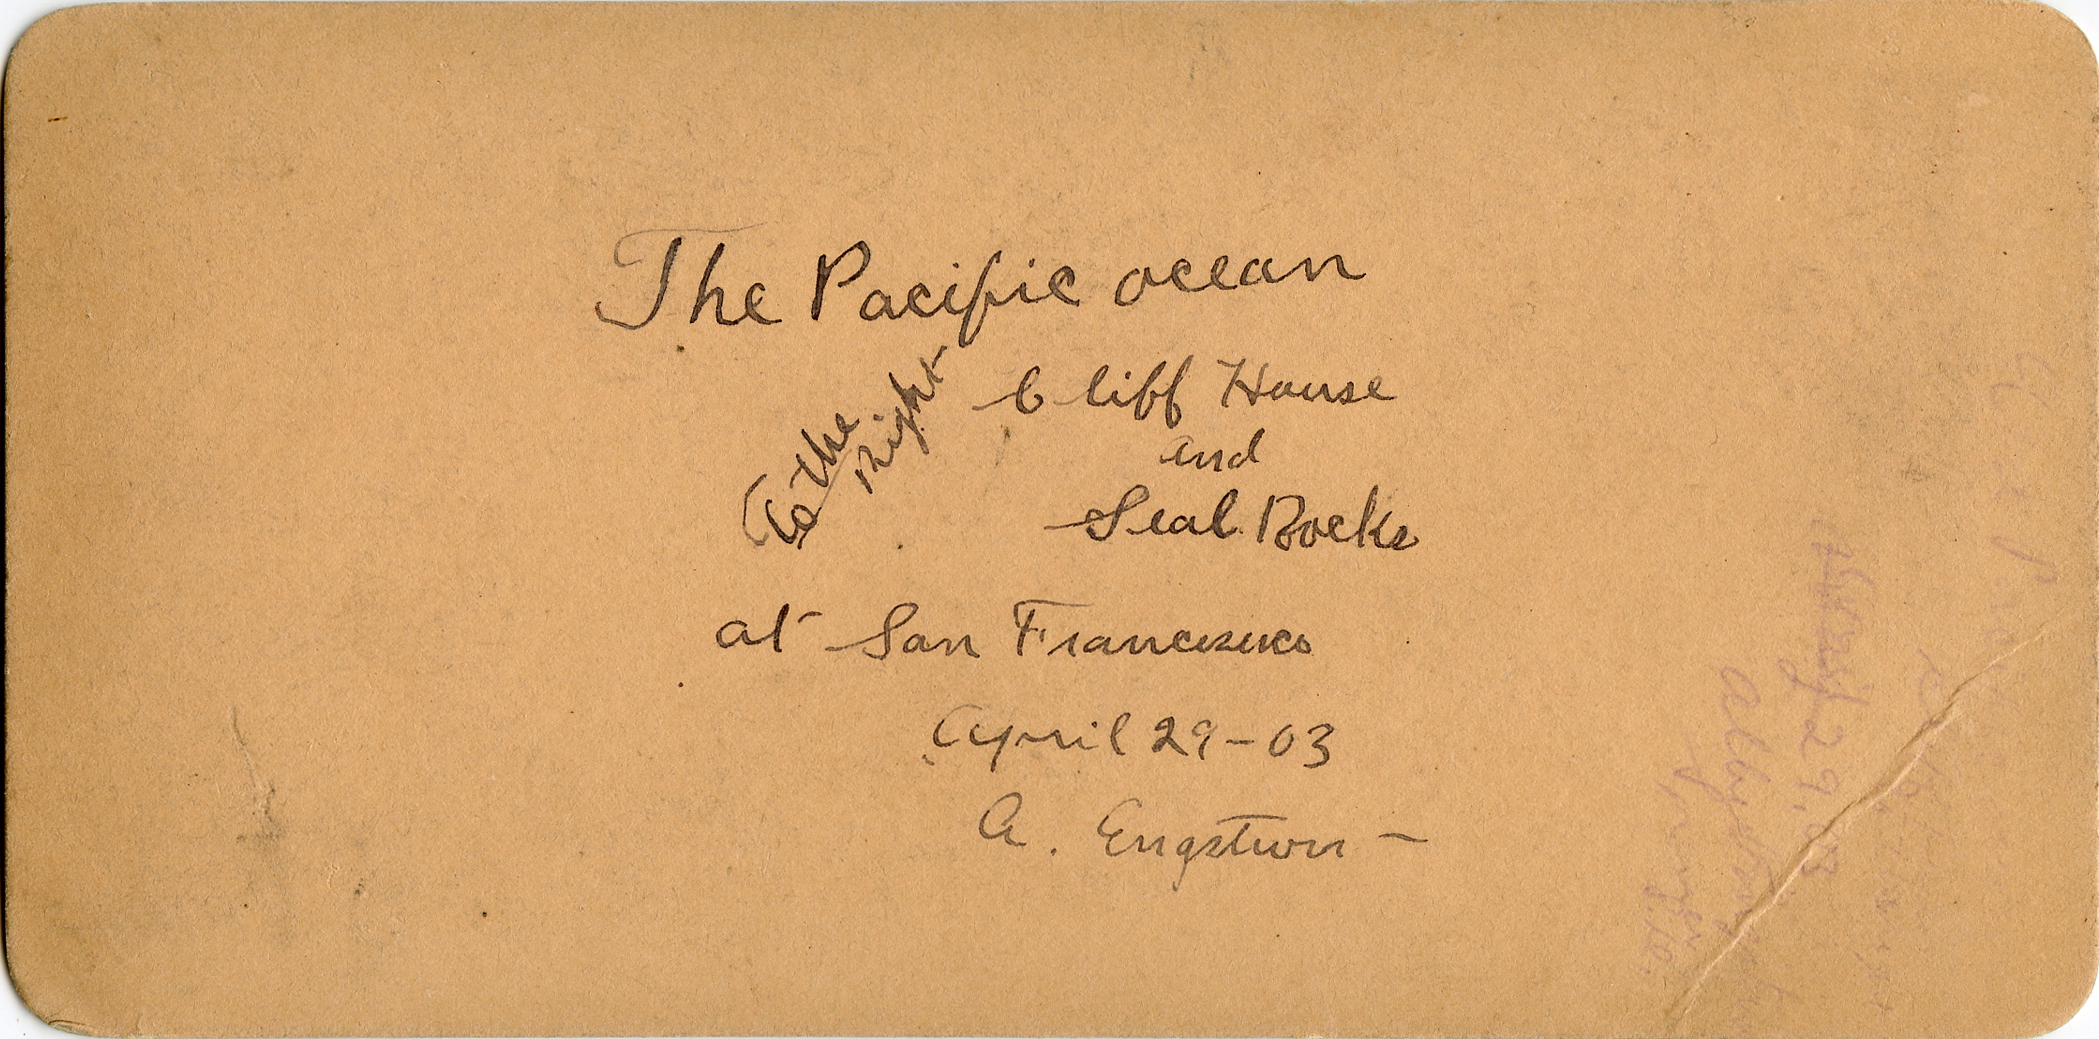 The Pacific ocean
To the
Right
Cliff House
and
Seal Rocks
at San Francisco
April 29-03
A. Engstrom -
29, 03